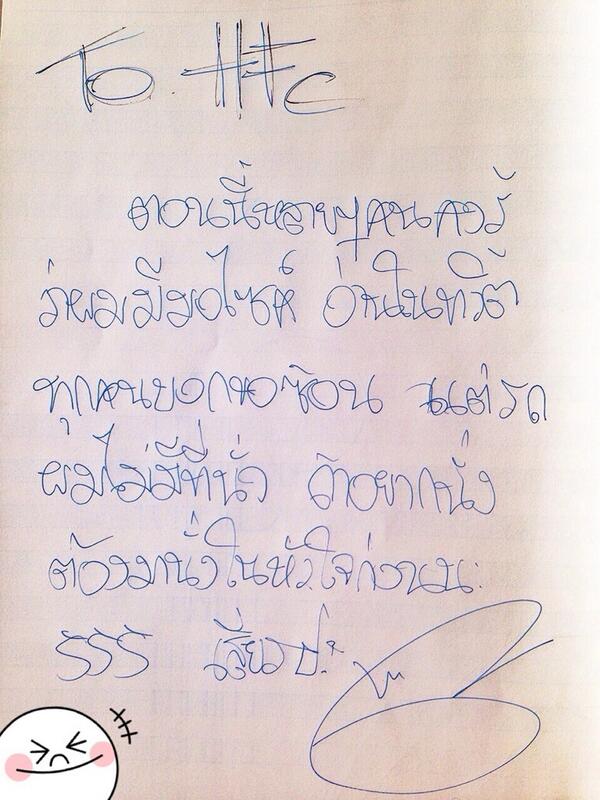 To. HHc
ตอนนี้หลายๆคนคงรู้
ว่าผมมีมอไซห์ อ่านในทวิต
ทุกคนบอกขอซ้อน แต่รถ
ผมไม่มีที่นั่ง ถ้าอยากนั่ง
ต้องมานั่งในหัวใจก่อนนะ
555 เสี่ยวป่ะ